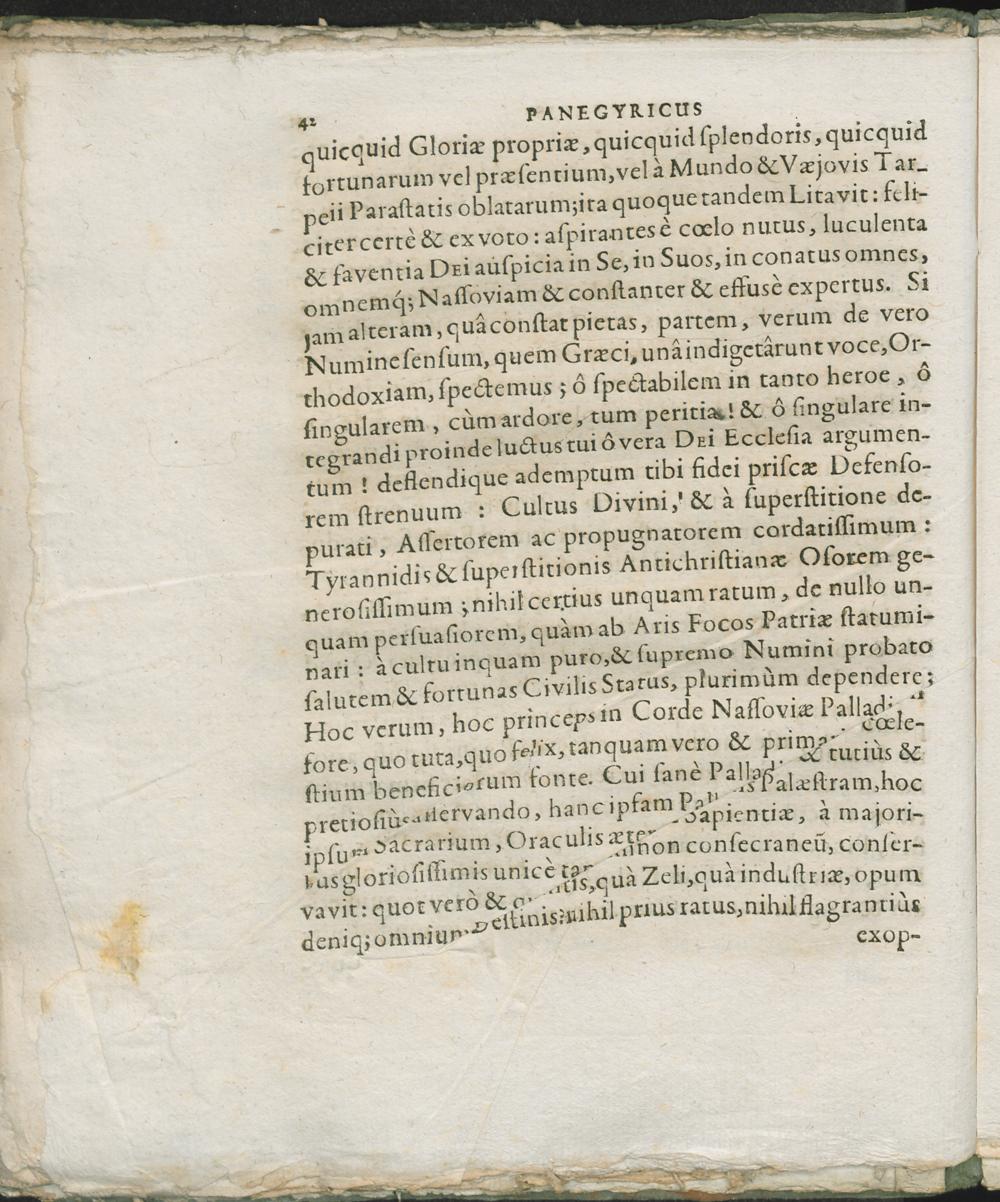 42 PANEGYRICUS
quicquid Gloriæ propriæ, quicquid ſplendoris, quicquid
fortunarum vel præſentium, vel à Mundo & Væjovis Tar-
peii Paraſtatis oblatarum; ita quoque tandem Litavit: feli-
citer certè & ex voto: aſpirantes è cœlo nutus, luculenta
& faventia DEI auſpicia in Se, in Suos, in conatus omnes,
omnemq́; Naſſoviam & conſtanter & effusè expertus. Si
jam alteram, quâ conſtat pietas, partem, verum de vero
Numine ſenſum, quem Græci, unâ indigetârunt voce, Or-
thodoxiam, ſpectemus; ô ſpectabilem in tanto heroe, ô
ſingularem, cùm ardore, tum peritia! & ô ſingulare in-
tegrandi proinde luctus tui ô vera DEI Eccleſia argumen-
tum! deflendique ademptum tibi fidei priſcæ Defenſo-
rem ſtrenuum: Cultus Divini, & à ſuperſtitione de-
purati, Aſſertorem ac propugnatorem cordatiſſimum:
Tyrannidis & ſuperſtitionis Antichriſtianæ Oſorem ge-
neroſiſſimum; nihil certius unquam ratum, de nullo un-
quam perſuaſiorem, quàm ab Aris Focos Patriæ ſtatumi-
nari: à cultu inquam puro, & ſupremo Numini probato
ſalutem & fortunas Civilis Status, plurimùm dependere;
Hoc verum, hoc princeps in Corde Naſſoviæ
fore, quo tuta, quo felix, tanquam vero & cœle-
ſtium beneficiorum fonte. Cui ſanè & tutiùs &
pretioſiùs hanc ipſam Palæſtram, hoc
ipſum Sacrarium, Oraculis Sapientiæ, à majori-
bus glorioſiſſimis unicè non conſecraneũ, conſer-
vavit: quot verò & quà Zeli, quà induſtriæ, opum
deniq; omnium nihil prius ratus, nihil flagrantiùs
exop-